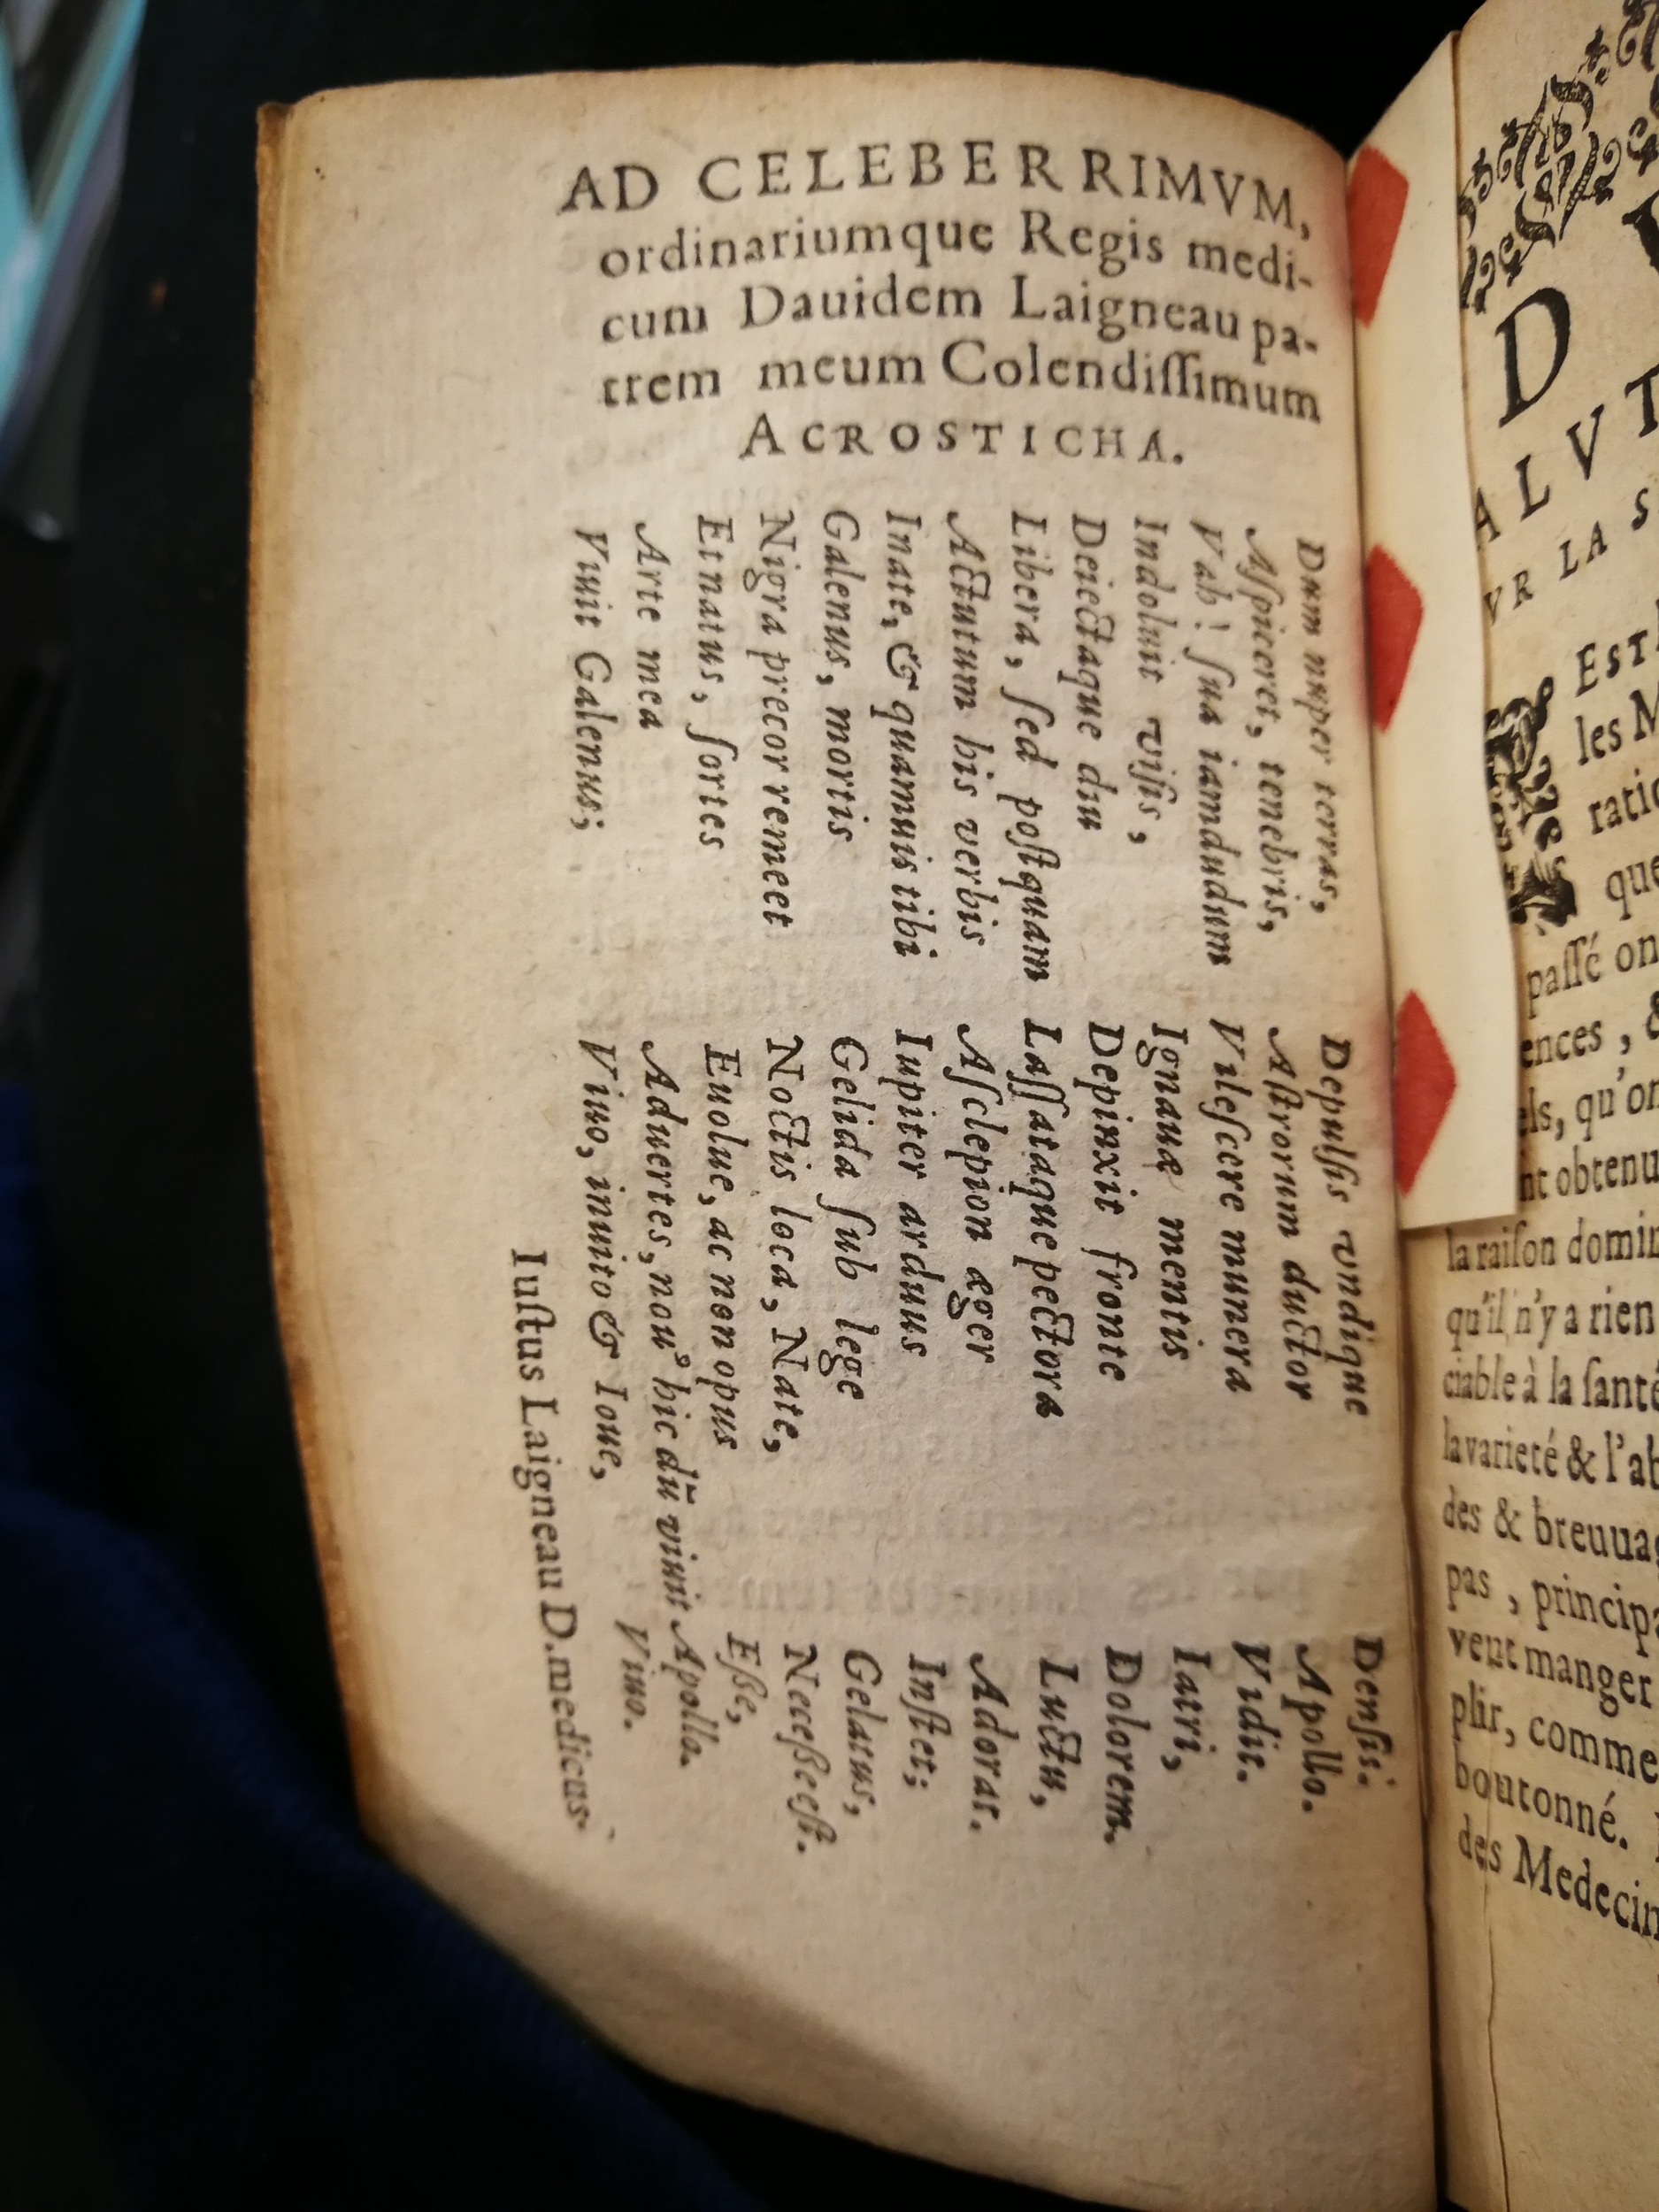 AD CELEBERRIMVM,
ordinariumque Regis medi-
cum Dauidem Laigneau pa-
trem meum Colendiſſimum
ACROSTICHA.
Dum nuper terras, Depulſis vndique Denſis.
Aſpiceret, tenebris, Aſtrorum ductor Apollo.
Vah! ſua iamdudum Vileſcere munera Vidit.
Indoluit viſis, Ignauæ mentis Iatri,
Deiectaque diu Depinxit fronte Dolorem.
Libera, ſed poſtquam Laſſataque pectora Luctu,
Actutum his verbis Aſclepion æger Adorat.
Inate, & quamuis tibi Iupiter arduus Inſtet;
Galenus, mortis Gelida ſub lege Gelatus,
Nigra precor remeet Noctis loca, Nate, Neceßeeſt.
Et natus, ſortes Euolue, ac non opus Eße,
Arte mea Aduertes, nouꝰ hic dū viuit Apollo.
Viuit Galenus; Viuo, inuito & Ioue, Viuo.
Iuſtus Laigneau D. medicus.
D
ALVT
VR LA S
EST
les M
ratio
que
paſſé on
ences, &
els, qu'on
nt obtenu
la raiſon domin
qu'il n'y a rien
ciable à la ſanté
la varieté & l'ab
des & breuuag
pas, principa
vent manger
plir, comme
boutonné.
des Medecin